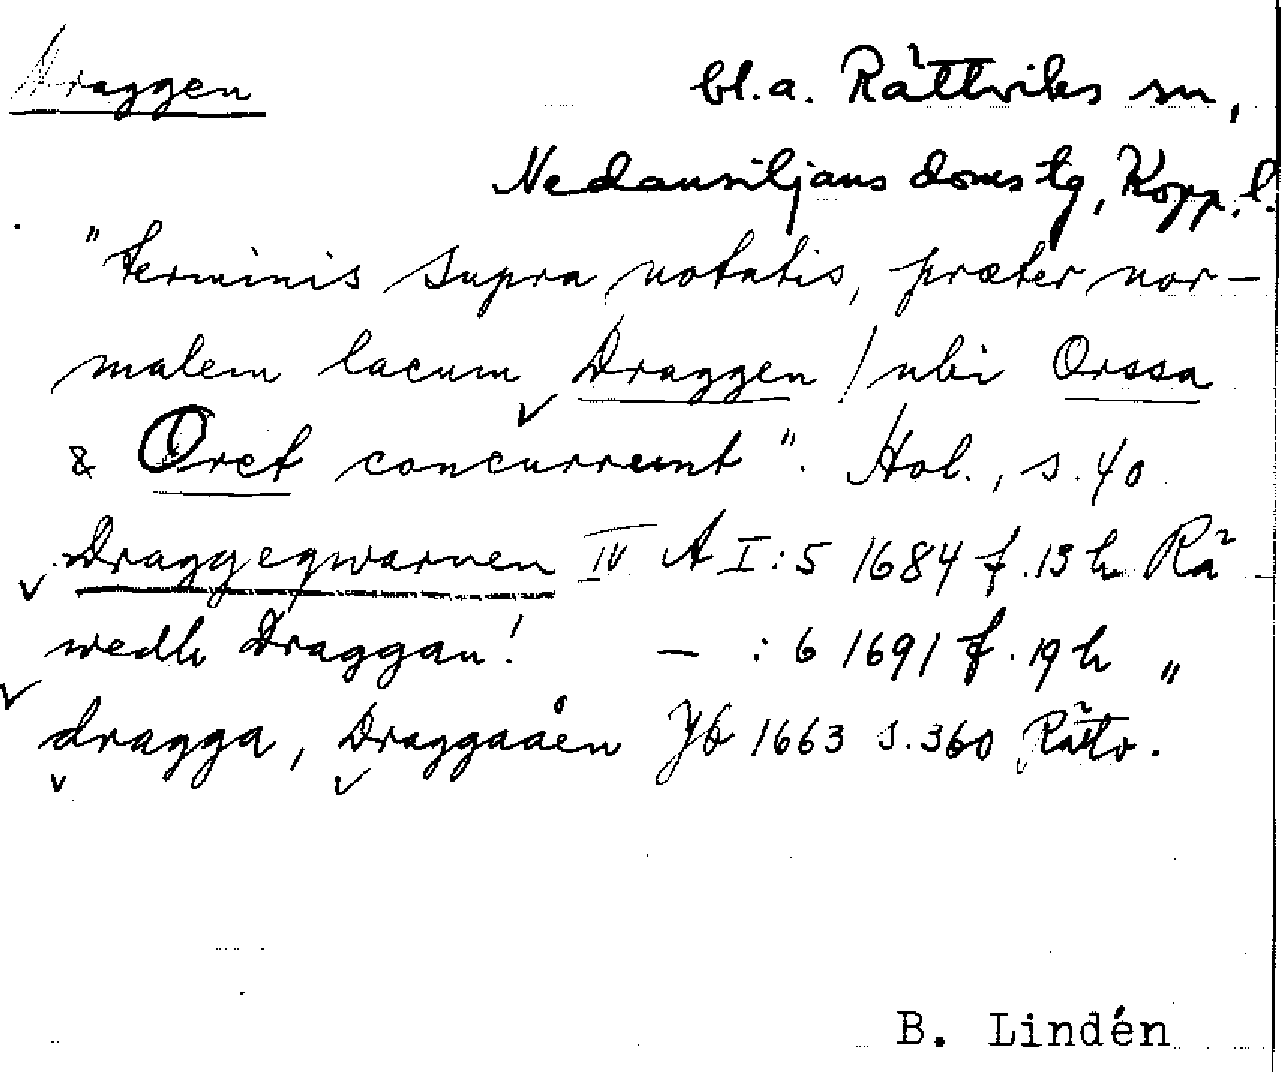 Draggen
bl.a. Rättviks sn,
Nedansiljans domstg, Kopp. l.
"terminis supra notatis, præter nor-
malem lacum Draggen / ubi Orssa
& Oret concurrunt". Hol., s. 40.
Draggeqwarnen IV A I:5 1684 f. 13 h Rä
wedh Draggan! — :6 1691 f. 19 h "
dragga, Draggaåen Jb 1663 s. 360 Rättv.
B. Lindén